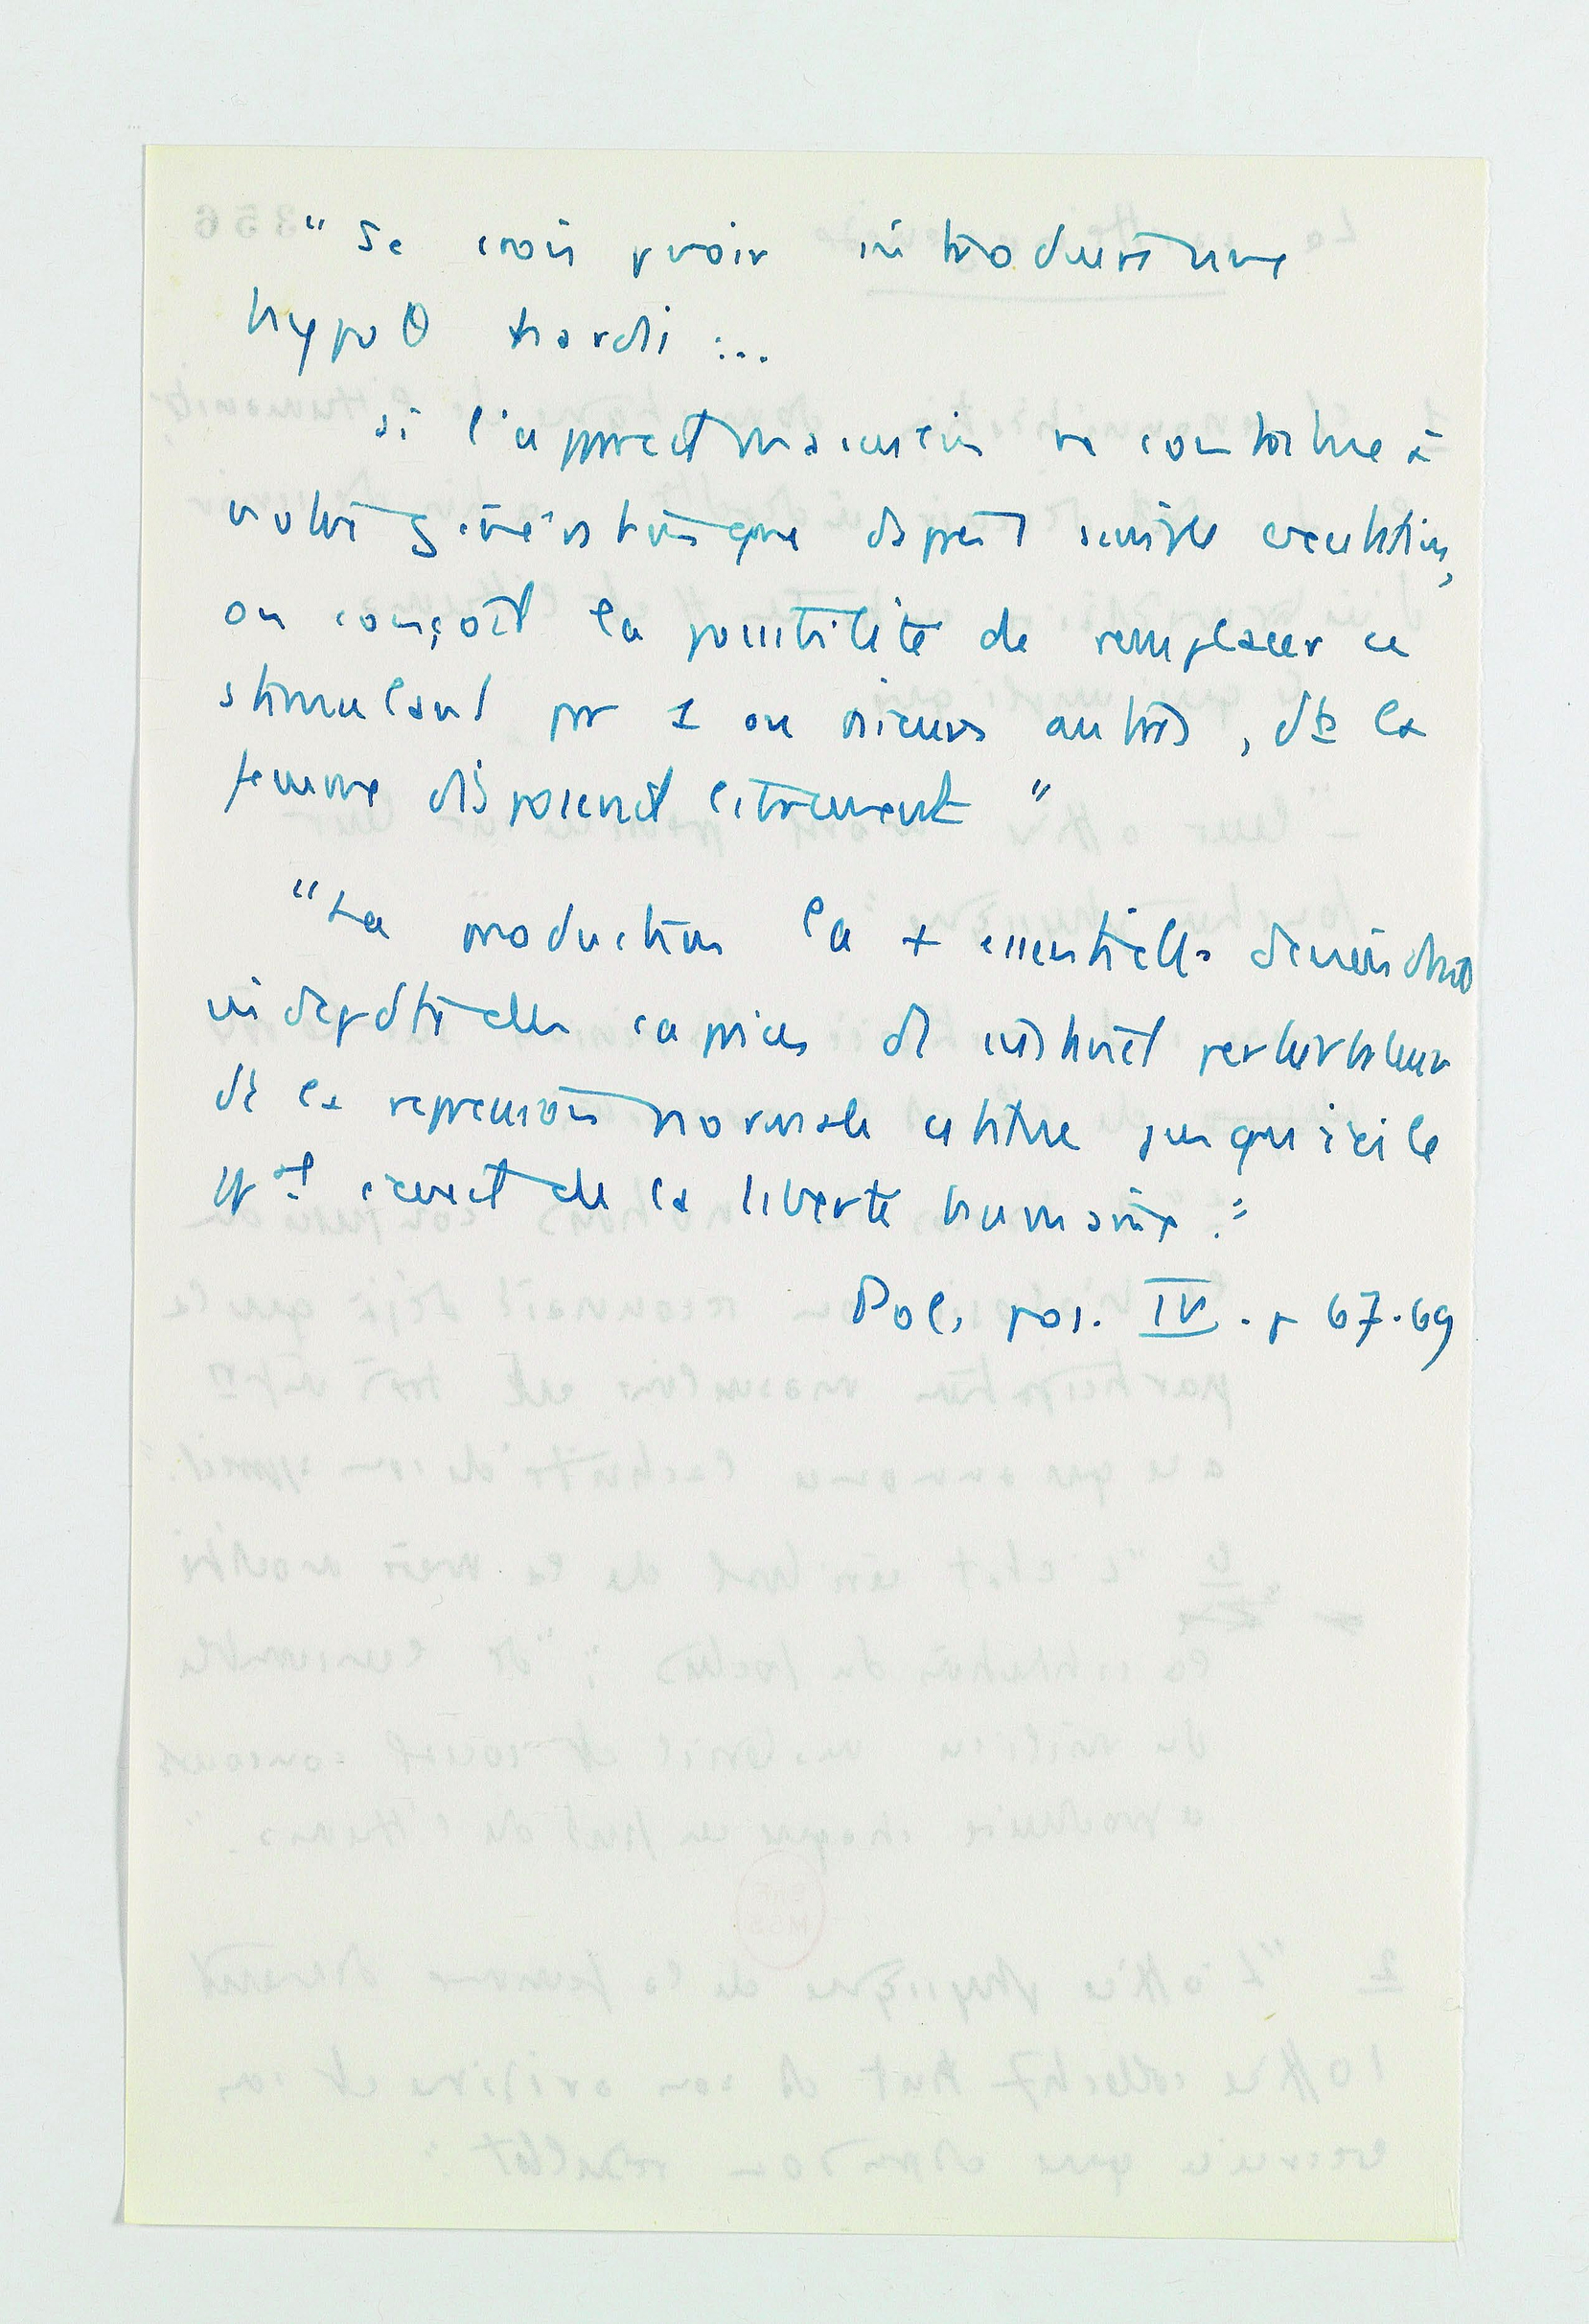 "Je crois pvoir introduire une
hypoθ hardi :...
si l'appareil masculin ne contribue à
notre génération que d'après 1 simple excitation,
on conçoit la possibilité de remplacer ce
stimulant par 1 ou plsieurs autres, dt la
femme disposerait librement"
"La production la + essentielle deviendrait
indépdte des caprices d'1 instinct perturbateur
dt la répression normale constitue jusqu'ici le
ppal écueil de la liberté humaine."
Pol. pos. IV. p 67-69